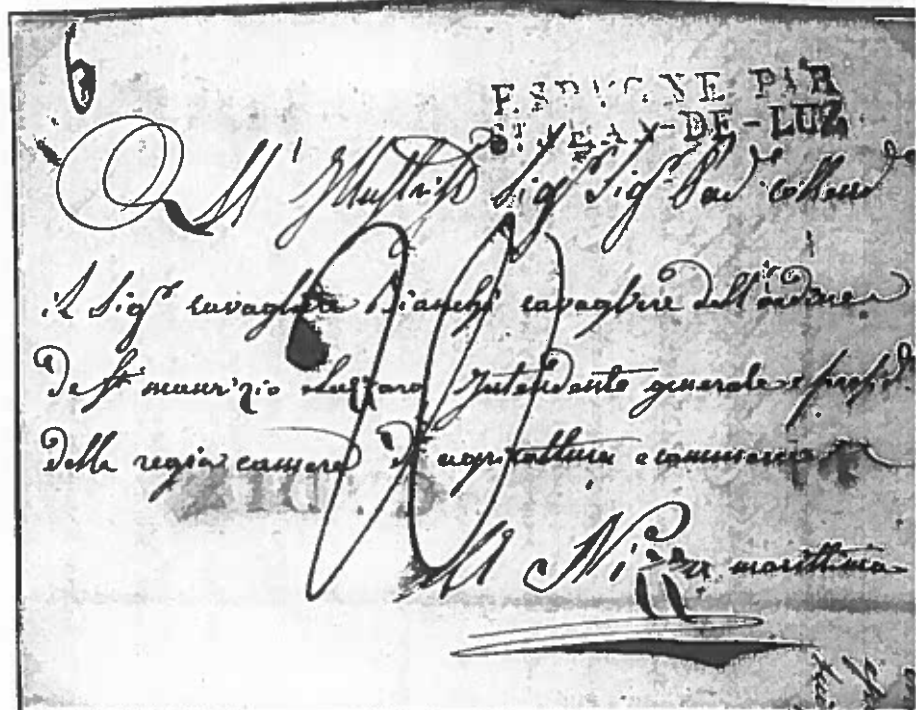 6
ESPAGNE PAR
ST. JEAN-DE-LUZ
All' Illustris.o Sig.r Sig.r Pad.
il Sig.r cavagliere Bianchi cavagliere dell'ordine
de S.ti maurizio e Lazzaro Intendente generale e presid.
della regia camera di agricoltura e commercio
A Nizza marittima